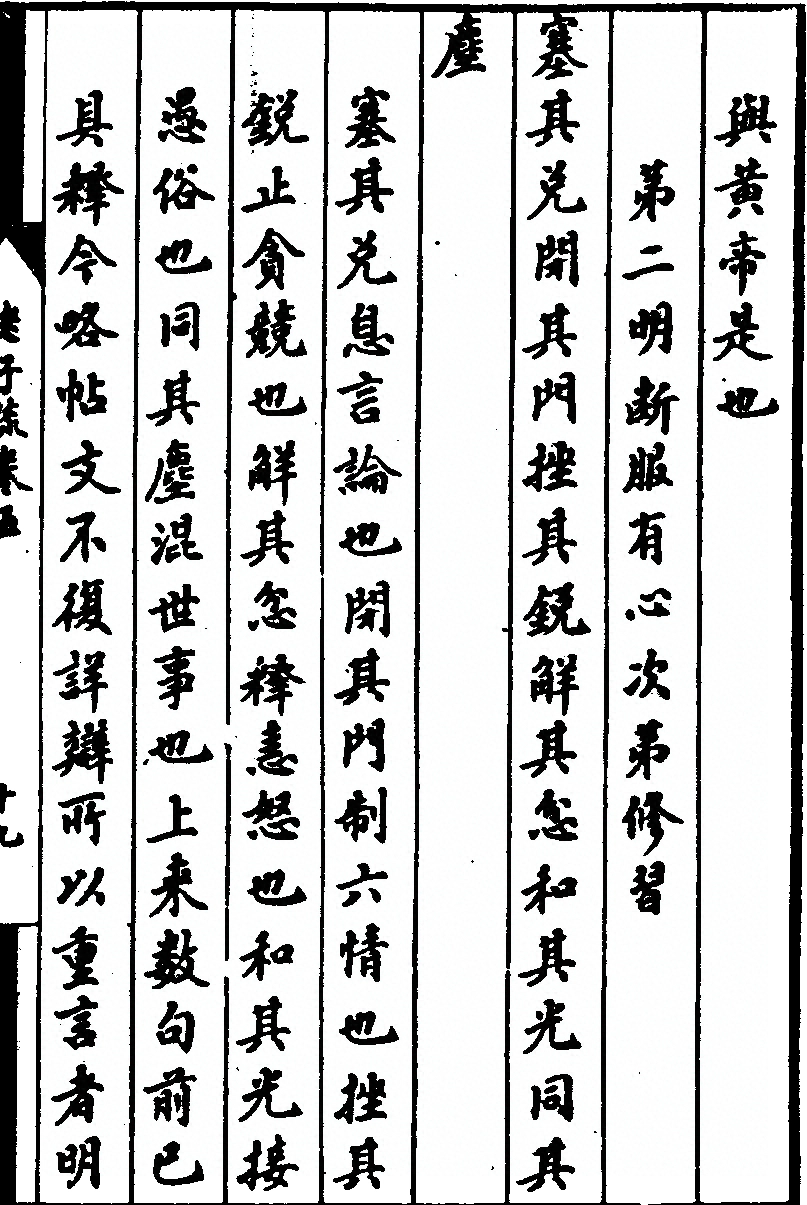 與黄帝是也
第二明断服有心次第修習
塞其兑閉其門挫其鋭解其忿和其光同其
塵
塞其兑息言論也閉其門制六情也挫其
鋭止貪競也解其忿釋恚怒也和其光接
愚俗也同其塵混世事也上来数句前已
具釋今略帖文不復詳辯所以重言者明
老子疏卷五
十九